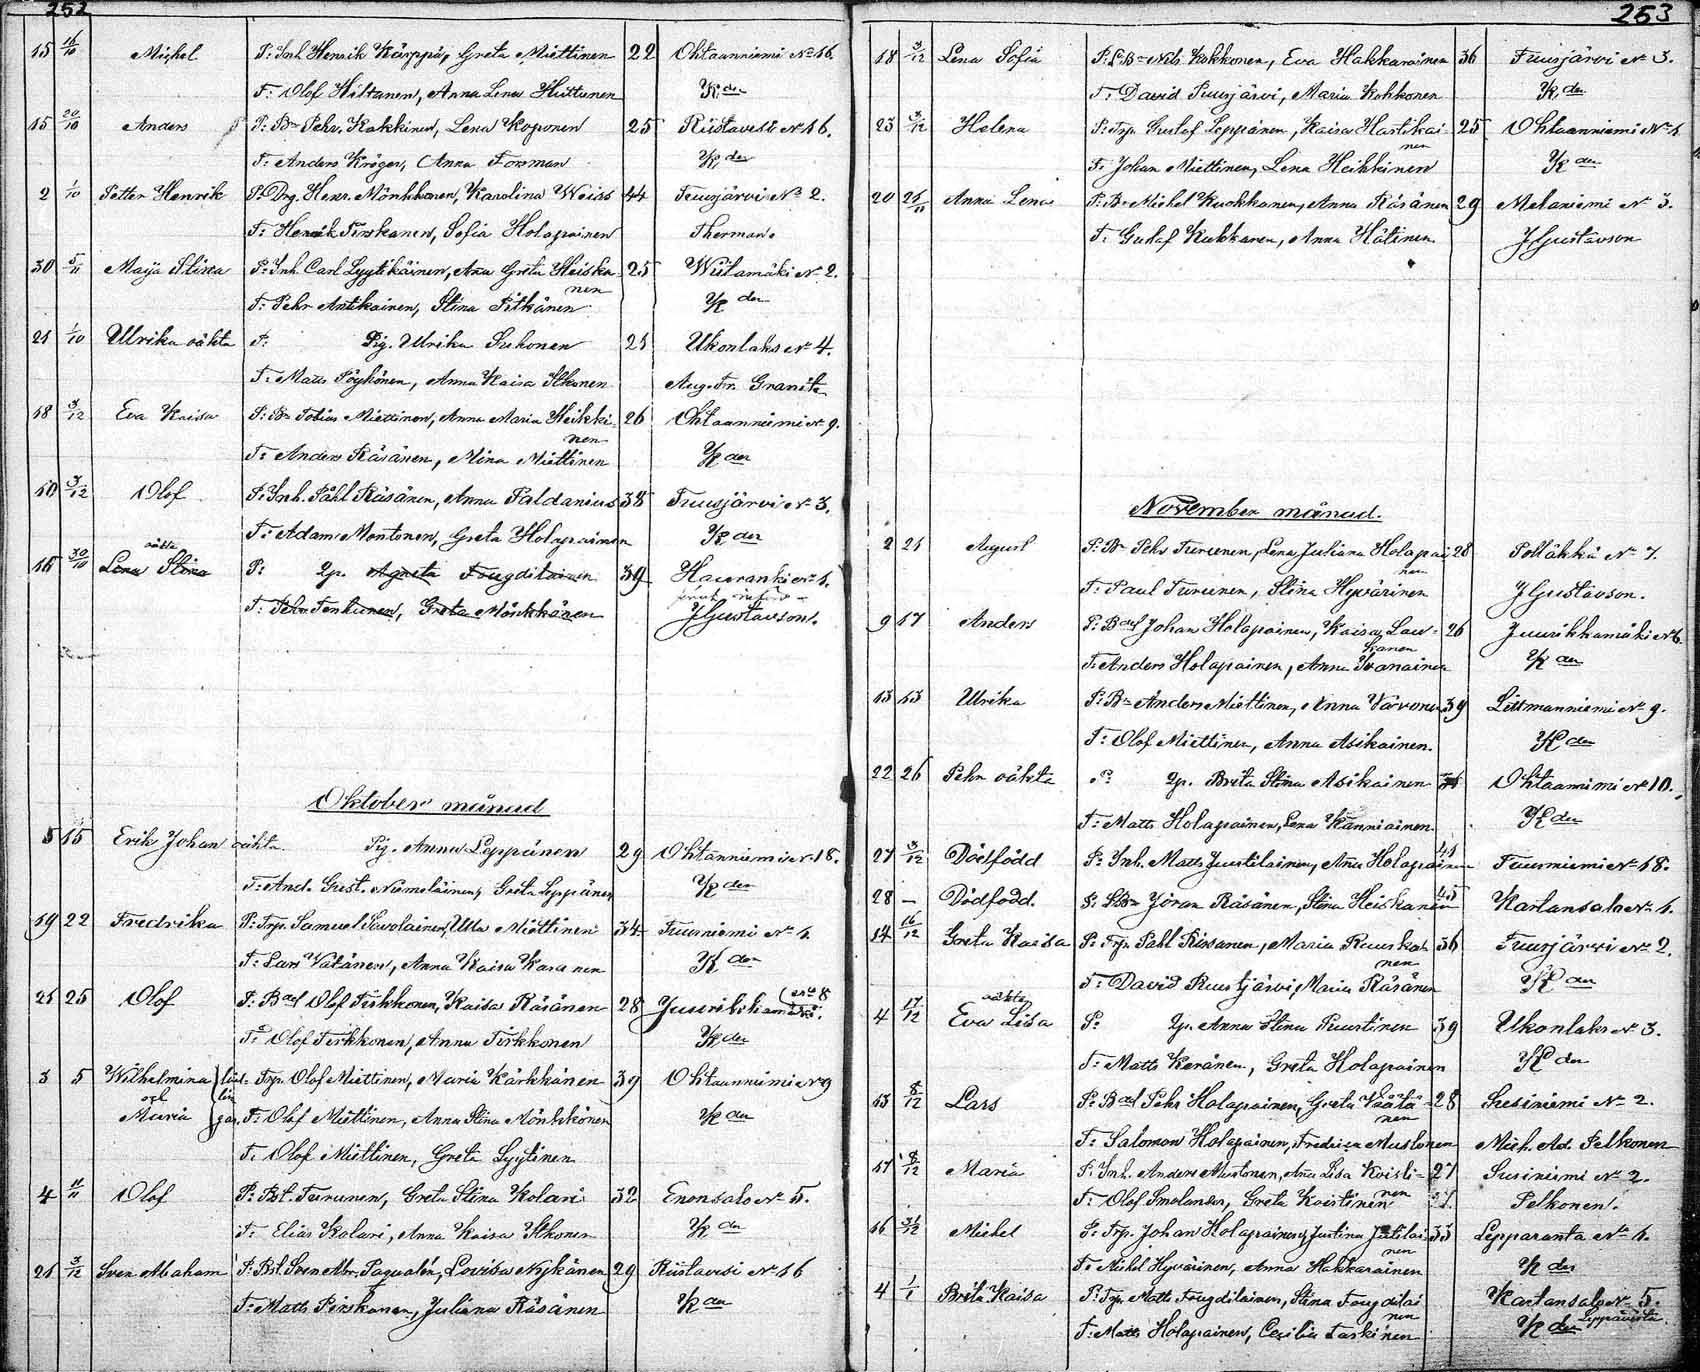 252
15 16/10 Michel P: Inh. Henrik Kärppä, Greta Miettinen 22 Ohtaanniemi No 16.
F: Olof Hiltanen, Anna Lena Huttunen K der
15 20/10 Anders P: Bn Pehr Kakkinen, Lena Koponen 25 Riistavesi No 16.
F: Anders Kröger, Anna Forsman K der
2 1/10 Petter Henrik P: Drg. Henr. Mönkkönen, Karolina Weiss 44 Tuusjärvi No 2.
F: Henrik Pirskanen, Sofia Holopainen Therman.
30 5/11 Maija Stina P: Inh. Carl Lyytikäinen, Anna Greta Heiska- 25 Wiitamäki No 2.
nen
F: Pehr Antikainen, Stina Pitkänen K der
21 1/10 Ulrika oäkta P: Pig. Ulrika Suhonen 21 Ukonlaks No 4.
F: Matts Pöykönen, Anna Kaisa Itkonen Aug. Fr. Granit
18 3/12 Eva Kaisa P: Bn Tobias Miettinen, Anna Maria Heikki- 26 Ohtaanniemi No 9.
nen
F: Anders Räsänen, Mina Miettinen K der
10 3/12 Olof P: Inh. Påhl Räsänen, Anna Paldanius 38 Tuusjärvi No 3.
F: Adam Montonen, Greta Holopainen K der
oäkta
16 30/10 Lena Stina P: Qp. Agneta Fougdilainen 39 Hauranki No 1.
F: Pehr Tenhunen, Greta Mönkkönen JGustavson.
Oktober månad
5 15 Erik Johan oäkta Pig. Anna Leppänen 29 Ohtaanniemi No 18.
F: And. Gust. Niemeläinen, Greta Leppänen K der
19 22 Fredrika P: Trp. Samuel Savolainen, Ulla Miettinen 34 Tuusniemi No 1.
F: Lars Vatanen, Anna Kaisa Karanen K der
21 25 Olof P: Bds Olof Tirkkonen, Kaisa Räsänen 28 Juurikkamäki No 8
F: Olof Tirkkonen, Anna Tirkkonen K der
3 5 Wilhelmina Trp. Olof Miettinen, Maria Kärkkänen 39 Ohtaanniemi No 9
och
Maria F: Olof Miettinen, Anna Stina Mönkkönen K der
F: Olof Miettinen, Greta Lyytinen
4 11/11 Olof P: Bst. Turunen, Greta Stina Kolari 32 Enonsalo No 5.
F: Elias Kolari, Anna Kaisa Itkonen K der
21 3/12 Sven Abraham P: Bst. Sven Abr. Pagualén, Lovisa Nykänen 29 Riistavesi No 16
F: Matts Pirskanen, Juliana Räsänen K der
253
18 3/12 Lena Sofia P: LBn Nils Kokkonen, Eva Hakkarainen 36 Tuusjärvi No 3.
F: David Puusjärvi, Maria Kokkonen K der
23 3/12 Helena P: Trp. Gustaf Leppänen, Kaisa Hartikai- 25 Ohtaanniemi No 1
nen
F: Johan Miettinen, Lena Heikkinen K der
20 25/11 Anna Lena P: Bn Michel Kuokkanen, Anna Räsänen 29 Melaniemi No 3.
F: Gustaf Kukkanen, Anna Hätinen. JGustavson
November månad.
2 21 August P: Bn Pehr Turunen, Lena Juliana Holopai- 28 Pölläkkä No 7.
nen
F: Paul Turunen, Stina Hyvärinen JGustavson.
9 17 Anders P: Bds Johan Holopainen, Kaisa Lau- 26 Juurikkamäki No 6.
kanen
F: Anders Holopainen, Anna Ivanainen K der
13 13 Ulrika P: Bn Anders Miettinen, Anna Varvonen 39 Litmanniemi No 9.
F: Olof Miettinen, Anna Asikainen. K der
22 26 Pehr oäkta P: Qp. Brita Stina Asikainen Ohtaaniemi No 10.
F: Matts Holopainen, Lena Känniainen. K der
27 3/12 Dödfödd P: Inh. Matts Juutilainen, Anna Holopainen 41 Tuusniemi No 18.
28 — Dödfödd. P: LBn Jöran Räsänen, Stina Heiskanen 45 Kartansalo No 1.
14 16/12 Greta Kaisa P: Trp. Påhl Rissanen, Maria Ruuska- 36 Tuusjärvi No 2.
nen
F: David Ruutjärvi, Maria Räsänen K der
oäkta
4 17/12 Eva Lisa P: Qp. Anna Stina Puustinen 39 Ukonlaks No 3.
F: Matts Keränen, Greta Holopainen K der
13 8/12 Lars P: Bds Pehr Holopainen, Greta Väätä- 28 Susiniemi No 2.
nen
F: Salomon Holopainen, Fredrica Mustonen Mich. Ad. Pelkonen
17 8/12 Maria P: Inh. Anders Mustonen, Anna Lisa Koisti- 27 Susiniemi No 2.
nen
F: Olof Smolander, Greta Koistinen Pelkonen.
16 31/12 Michel P: Trp. Johan Holopainen, Justina Jutilai- 33 Lepparanta No 1.
nen
F: Michel Hyvärinen, Anna Hakkarainen K der
4 1/1 Brita Kaisa P: Trp. Matts Fougdilainen, Stina Fougdilai Kartansalo No 5.
nen
F: Matts Holopainen, Cecilia Taskinen K der Leppävirta